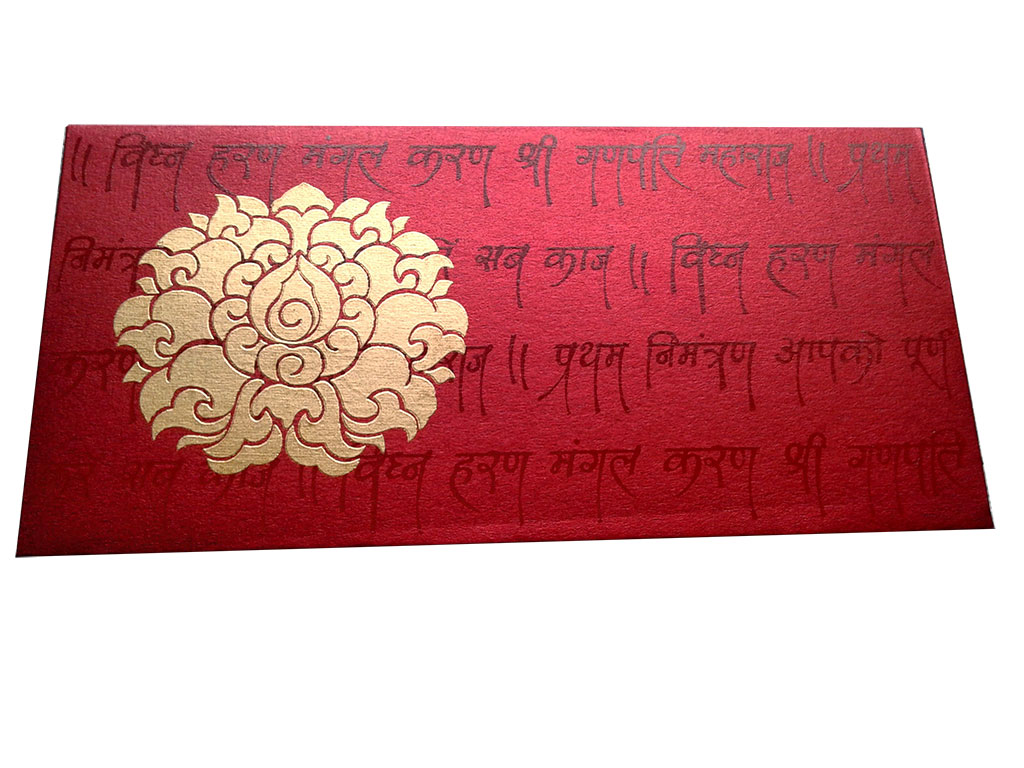 ॥ विघ्न हरण मंगल करण श्री गणपति महाराज ॥ प्रथम
सब काज ॥ विघ्न हरण मंगल
॥ प्रथम निमंत्रण आपको पूर्ण
सब काज ॥ विघ्न हरण मंगल करण श्री गणपति